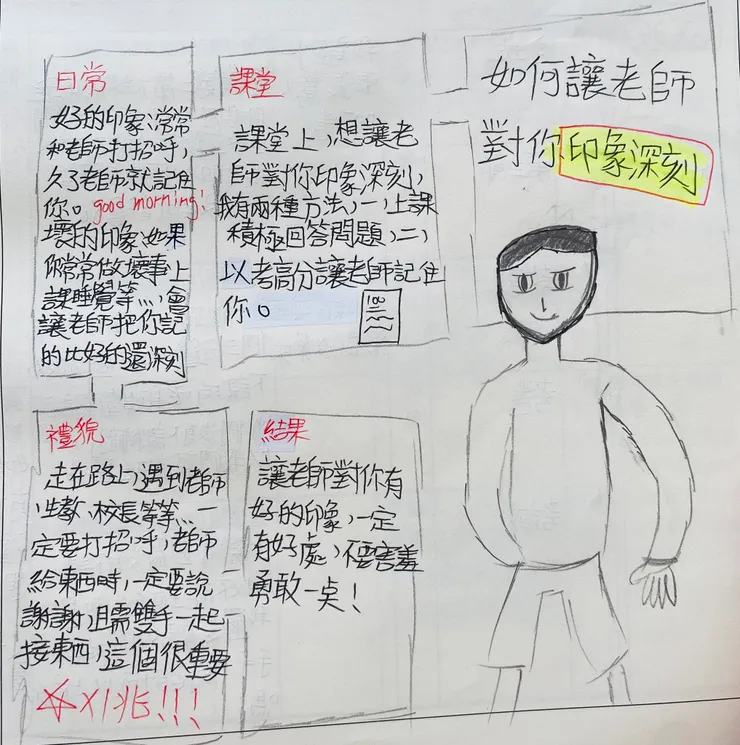 如何讓老師
對你印象深刻
課堂
課堂上,想讓老
師對你印象深刻,
我有兩種方法,一、上課
積極回答問題,二、
以考高分讓老師記住
你。
100
日常
好的印象:常常
和老師打招呼,
久了老師就記住
你。good morning!
壞的印象:如果
你常常做壞事,上
課睡覺等...,會
讓老師把你記
的比好的還深刻
禮貌
走在路上,遇到老師
、生教、校長等等...一
定要打招呼,老師
給東西時,一定要說
謝謝,且需雙手一起
接東西,這個很重要
☆X1兆!!!
結果
讓老師對你有
好的印象,一定
有好處,不要害羞
勇敢一點!